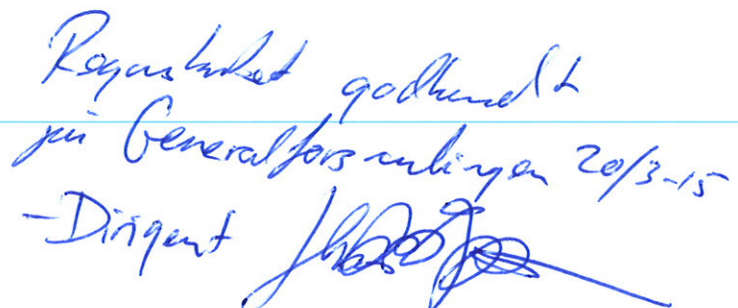 Regnskabet godkendt
på Generalforsamlingen 20/3-15
-Dirigent